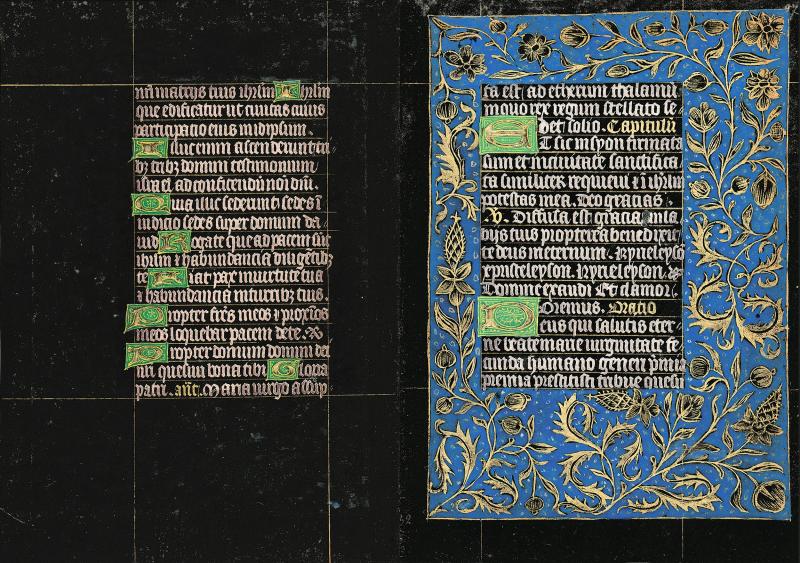 nri mattys tuis ihrlm Ihrlm
que edificatur ut ciuitas cuius
participacio eius in idipsum.
Illuc enim ascenderunt tri
bz tribz domini testimonium
isrl el ad confitendū noī dnī.
Quia illic sederunt sedes ī
iudicio sedes super domum da
uid Rogate que ad pacem sūt
ihrlm ⁊ habundancia diligētibz
te Fiat pax in uirtute tua
⁊ habundancia in turribz tuis.
Propter frēs meos ⁊ proxīos
meos loquebar pacem de te. X
Propter domum domini dei
nri quesiui bona tibi Gloria
patri. añt. Maria uirgo assūp
ta est ad etherium thalamū
in quo rex regum stellato se
det solio. Capitulū
Et sic in syon firmata
sum et in ciuitate sanctifica
ta similiter requieui ⁊ ī ihrlm
potestas mea. Deo gracias.
.v. Diffusa est gracia in la
bijs tuis propterea benedixit
te deus in eternum. Kyrieleyson
xpristeleyson. Kyrieleyson.
Domine exaudi Et clamor.
Oremus. Oratio
Deus qui salutis eter
ne beate marie uirginitate fe
cunda humano generi p̄mia
premia prestitisti tribue quesū